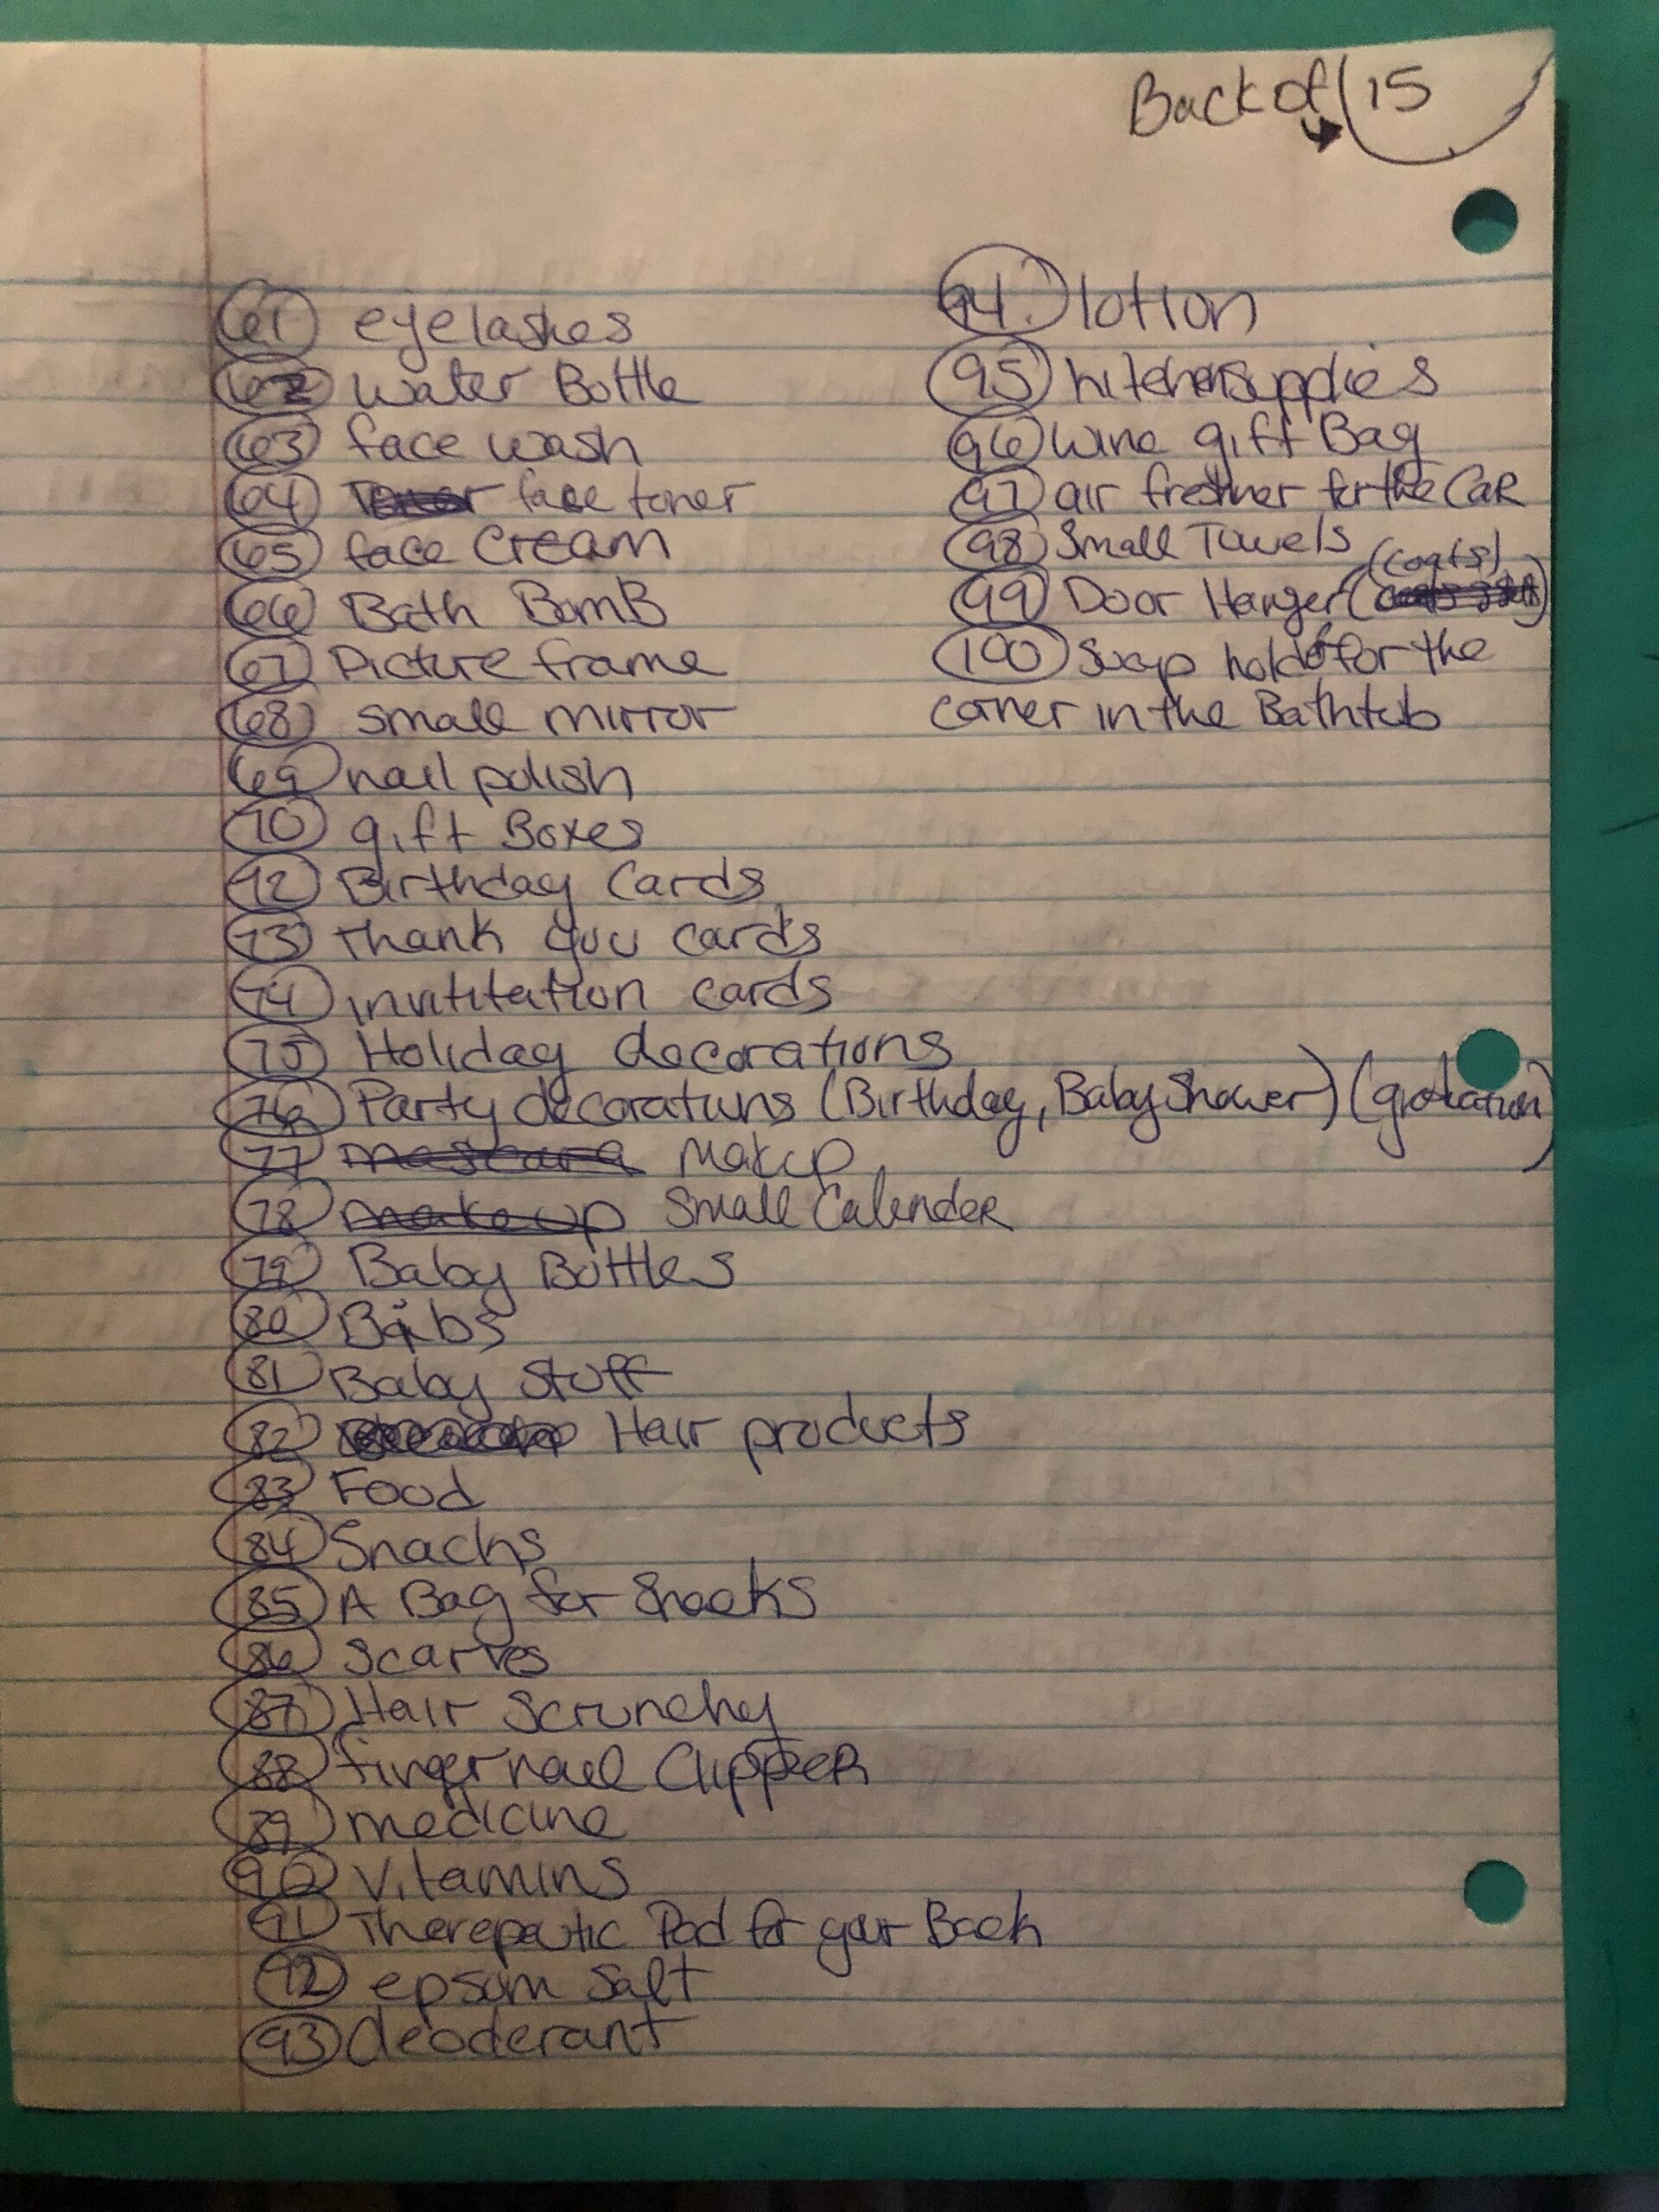 Back of 15
61 eyelashes
62 water Bottle
63 face wash
64 face toner
65 face Cream
66 Bath BomB
67 Picture frame
68 small mirror
69 nail polish
70 gift Boxes
72 Birthday Cards
73 Thank you cards
74 invititation cards
75 Holiday decorations
76 Party decorations (Birthday, Baby Shower)
77 mascara Makup
78 makeup Small Calender
79 Baby Bottles
80 Bibs
81 Baby Stuff
82 Hair products
83 Food
84 Snacks
85 A Bag for Snacks
86 Scarves
87 Hair Scrunchy
88 fingernail ClippeR
89 medicine
90 Vitamins
91 Therepeutic Pad for your Back
92 epsom Salt
93 deoderant
94. lotion
95 kitchen supplies
96 wine gift Bag
97 air freshner for the CaR
98 Small Towels
99 Door Hanger (coats)
100 Soap holder for the
corner in the Bathtub